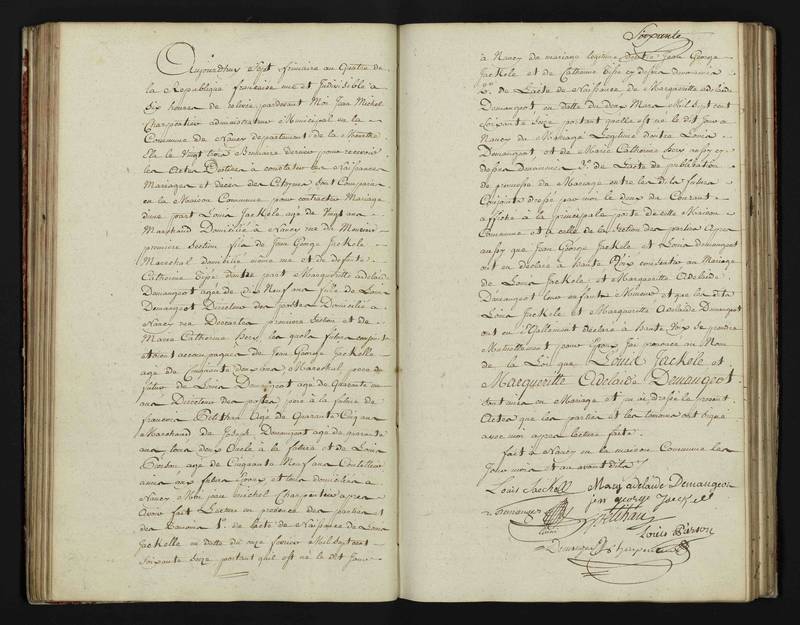 Aujourdhuy Sept frimaire an Quatre de
la Republique francaise une et Indivisible à
Six heures de relevée pardevant Moi Jean Michel
Charpentier administrateur Municipal de la
Commune de Nancy departement de la Meurthe
Elu le Vingt trois Brumaire dernier pour recevoir
les Actes Destinés à constater les Naissances
Mariages et deces des Citoyens sont Comparus
en la Maison Commune pour contracter Mariage
dune part Louis Jackele agé de Vingt ans
Marchand Domicilié à Nancy rue du
premiere Section fils de Jean George Jackele
Marechal domicilié même rue et de defunte
Catherine dautre part Margueritte adelaide
Demangeot agée de dix Neuf ans fille de Louis
Demangeot Directeur des postes Domicilié a
Nancy rue Descartes premiere Section et de
Marie Catherine Bers les quels futurs conjoints
etoient accompagnés de Jean George Jackelle
agé de Cinquante deux ans Marechal pere du
futur de Louis Demangeot agé de Quarante un
ans Directeur des postes pere à la future de
francois Pelithan agé de Quarante Cinq ans
Marchand de Joseph Demangeot agé de quarante
ans tous deux Oncle à la future et de Louis
Pierson age de Cinquante Neuf ans Coutellier
amis aux futurs Epoux et tous domiciliés a
Nancy Moi Jean michel Charpentier apres
Avoir fait Lecture en presence des parties et
des temoins 1° de lacte de Naissance de Louis
Jackelle en datte du onze fevrier Mil Sept cent
Soixante Seize portant quil est né le dit Jour
Soixante
à Nancy du mariage legitime dentre Jean George
Jackele et de Catherine cy devant denommés
2° de Lacte de Naissance de Margueritte adelaide
Demangeot en datte du deux Mars Mil Sept cent
Soixante Seize portant quelle est née le dit Jour a
Nancy du Mariage Legitime dentre Louis
Demangeot et de Marie Catherine Bers aussy cy
devant denommés 3° de Lacte de publication
de promesse de Mariage entre les dits futurs
Conjoints dressé par moi le deux du Courant
affiché à la principale porte de cette Maison
Commune et à celle de la Section des parties Apres
aussy que Jean George Jackele et Louis demangeot
ont eu declaré à haute Voix consentir au Mariage
de Louis Jackele et Margueritte Adelaide
Demangeot leurs enfants Mineurs et que les dits
Louis Jackele et Margueritte Adelaide Demangeot
ont eu Itallement declaré à haute Voix se prendre
Mutuellement pour Epoux J'ai prononcé au Nom
de la Loi que Louis Jackele et
Margueritte Adelaide Demangeot
Sont unis en Mariage et jai dressé le present
Acte que les parties et les temoins ont signé
avec moi apres lecture faite.
fait à Nancy en la maison Commune les
Jour mois et an avant dits
Louis Jackell Marg adelaide Demangeon
Demangeot jean george Jackell
Pelithan
Louis Pierson
Demangeot Charpentier